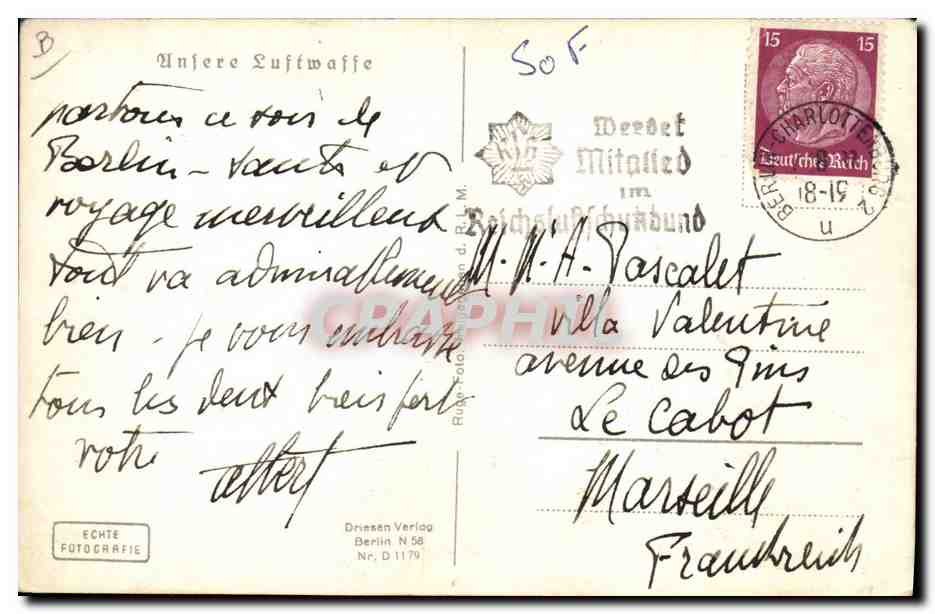 B
Unsere Luftwaffe
SoF
15 15
Deutsches Reich
BERLIN-CHARLOTTENBURG 2
18-19
n
Werdet
Mitglied
im
Reichsluftschutzbund
partons ce soir de
Berlin - santé et
voyage merveilleux
tout va admirablement
bien - je vous embrasse
tous les deux bien fort
votre
albert
M. A. Pascalet
villa Valentine
avenue des Pins
Le Cabot
Marseille
Frankreich
d. R.L.M.
ECHTE
FOTOGRAFIE
Driesen Verlag
Berlin N 58
Nr. D 1179